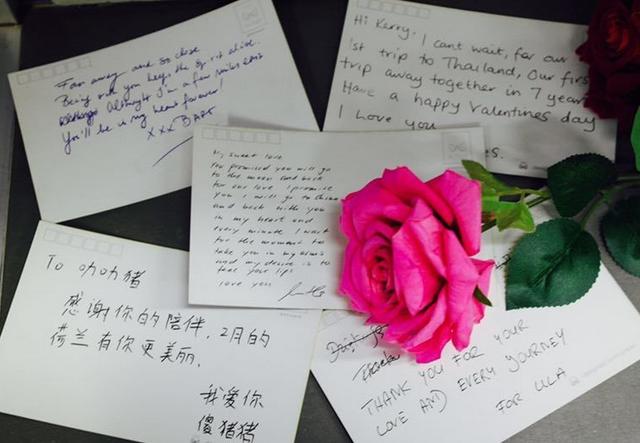 Far away and so close
Being with you keeps the spirit alive..
Although I'm a few miles away
You'll be in my heart forever!
xxx BART
Hi Kerry, I cant wait, for our
1st trip to Thailand, Our first
trip away together in 7 years
Have a happy Valentines day
I Love you
es.
My sweet love
You promised you will go
to the moon and back
for our love I promise
you I will go to China
and back with you
in my heart and
every minute I wait
for the moment to
take you in my arms
and my desire is to
feel your lips
love you
To 咖咖猪
感谢你的陪伴,2月的
荷兰有你更美丽.
我爱你
傻猪猪
THANK YOU FOR YOUR
LOVE AND EVERY JOURNEY
FOR ULA